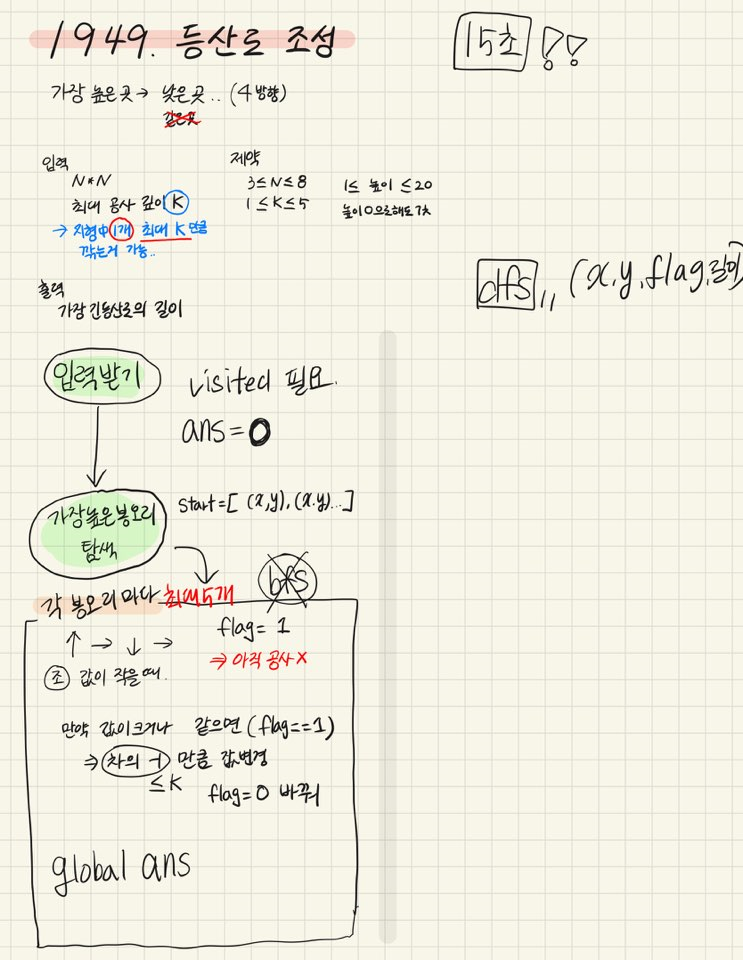 1949. 등산로 조성
15초 !!
가장 높은 곳 → 낮은 곳.. (4방향)
같은곳
입력
N*N
최대 공사 깊이 K
→ 지형中 1개 최대 K만큼
깎는거 가능..
제약
3≤N≤8
1≤K≤5
1≤ 높이 ≤20
높이 0으로해도 가능
출력
가장 긴 등산로의 길이
dfs,, (x,y,flag,길이)
입력받기
visited 필요.
ans=0
가장높은봉오리
탐색
start=[ (x,y),(x.y)...]
bfs
각 봉오리 마다 최대5개
↑ → ↓ →
flag= 1
⇒ 아직 공사 X
조 값이 작을 때.
만약 값이크거나 같으면 (flag==1)
⇒ 차의 -1 만큼 값변경
≤K
flag=0 바꾸기
global ans